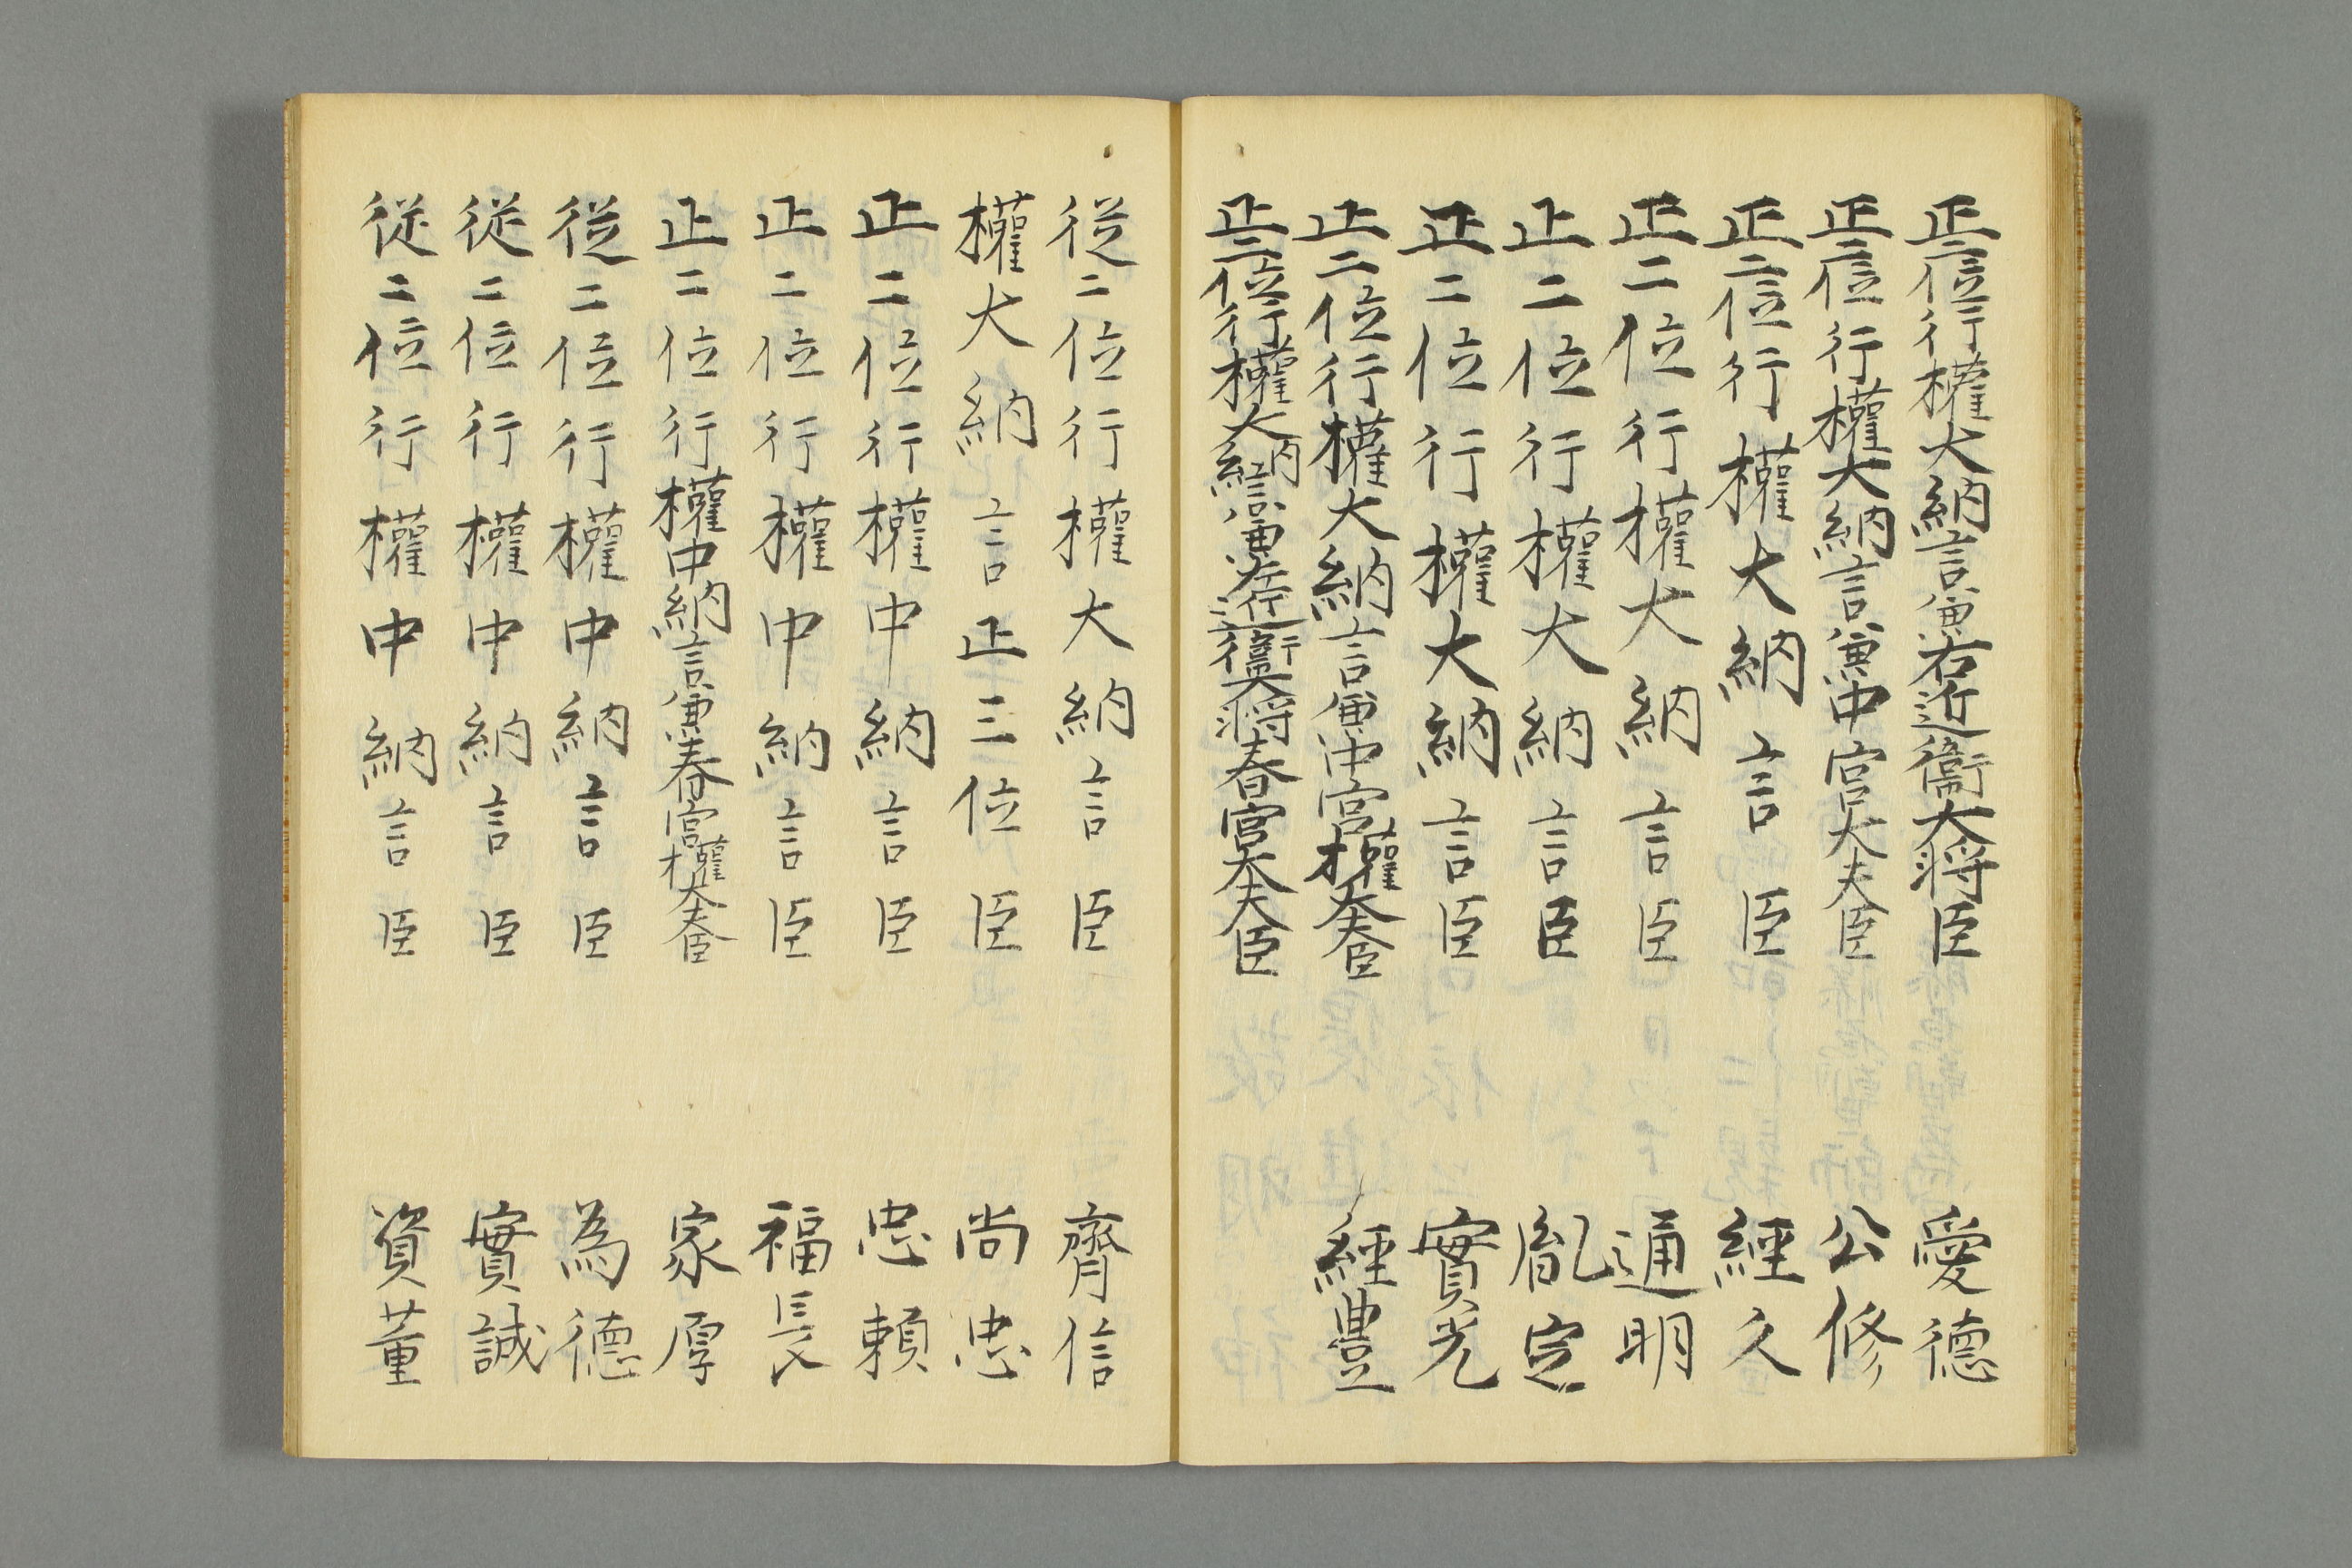 正二位行權大納言兼右近衞大将臣 愛德
正二位行權大納言兼中宮大夫臣 公修
正二位行權大納言臣 經久
正二位行權大納言臣 通明
正二位行權大納言臣 胤定
正二位行權大納言臣 實光
正二位行權大納言兼中宮權大夫臣 經豊
正二位行權大納言兼左近衞大将春宮大夫臣
従二位行權大納言臣 齊信
權大納言正三位臣 尚忠
正二位行權中納言臣 忠頼
正二位行權中納言臣 福長
正二位行權中納言兼春宮權大夫臣 家厚
従二位行權中納言臣 為德
従二位行權中納言臣 實誠
従二位行權中納言臣 資董